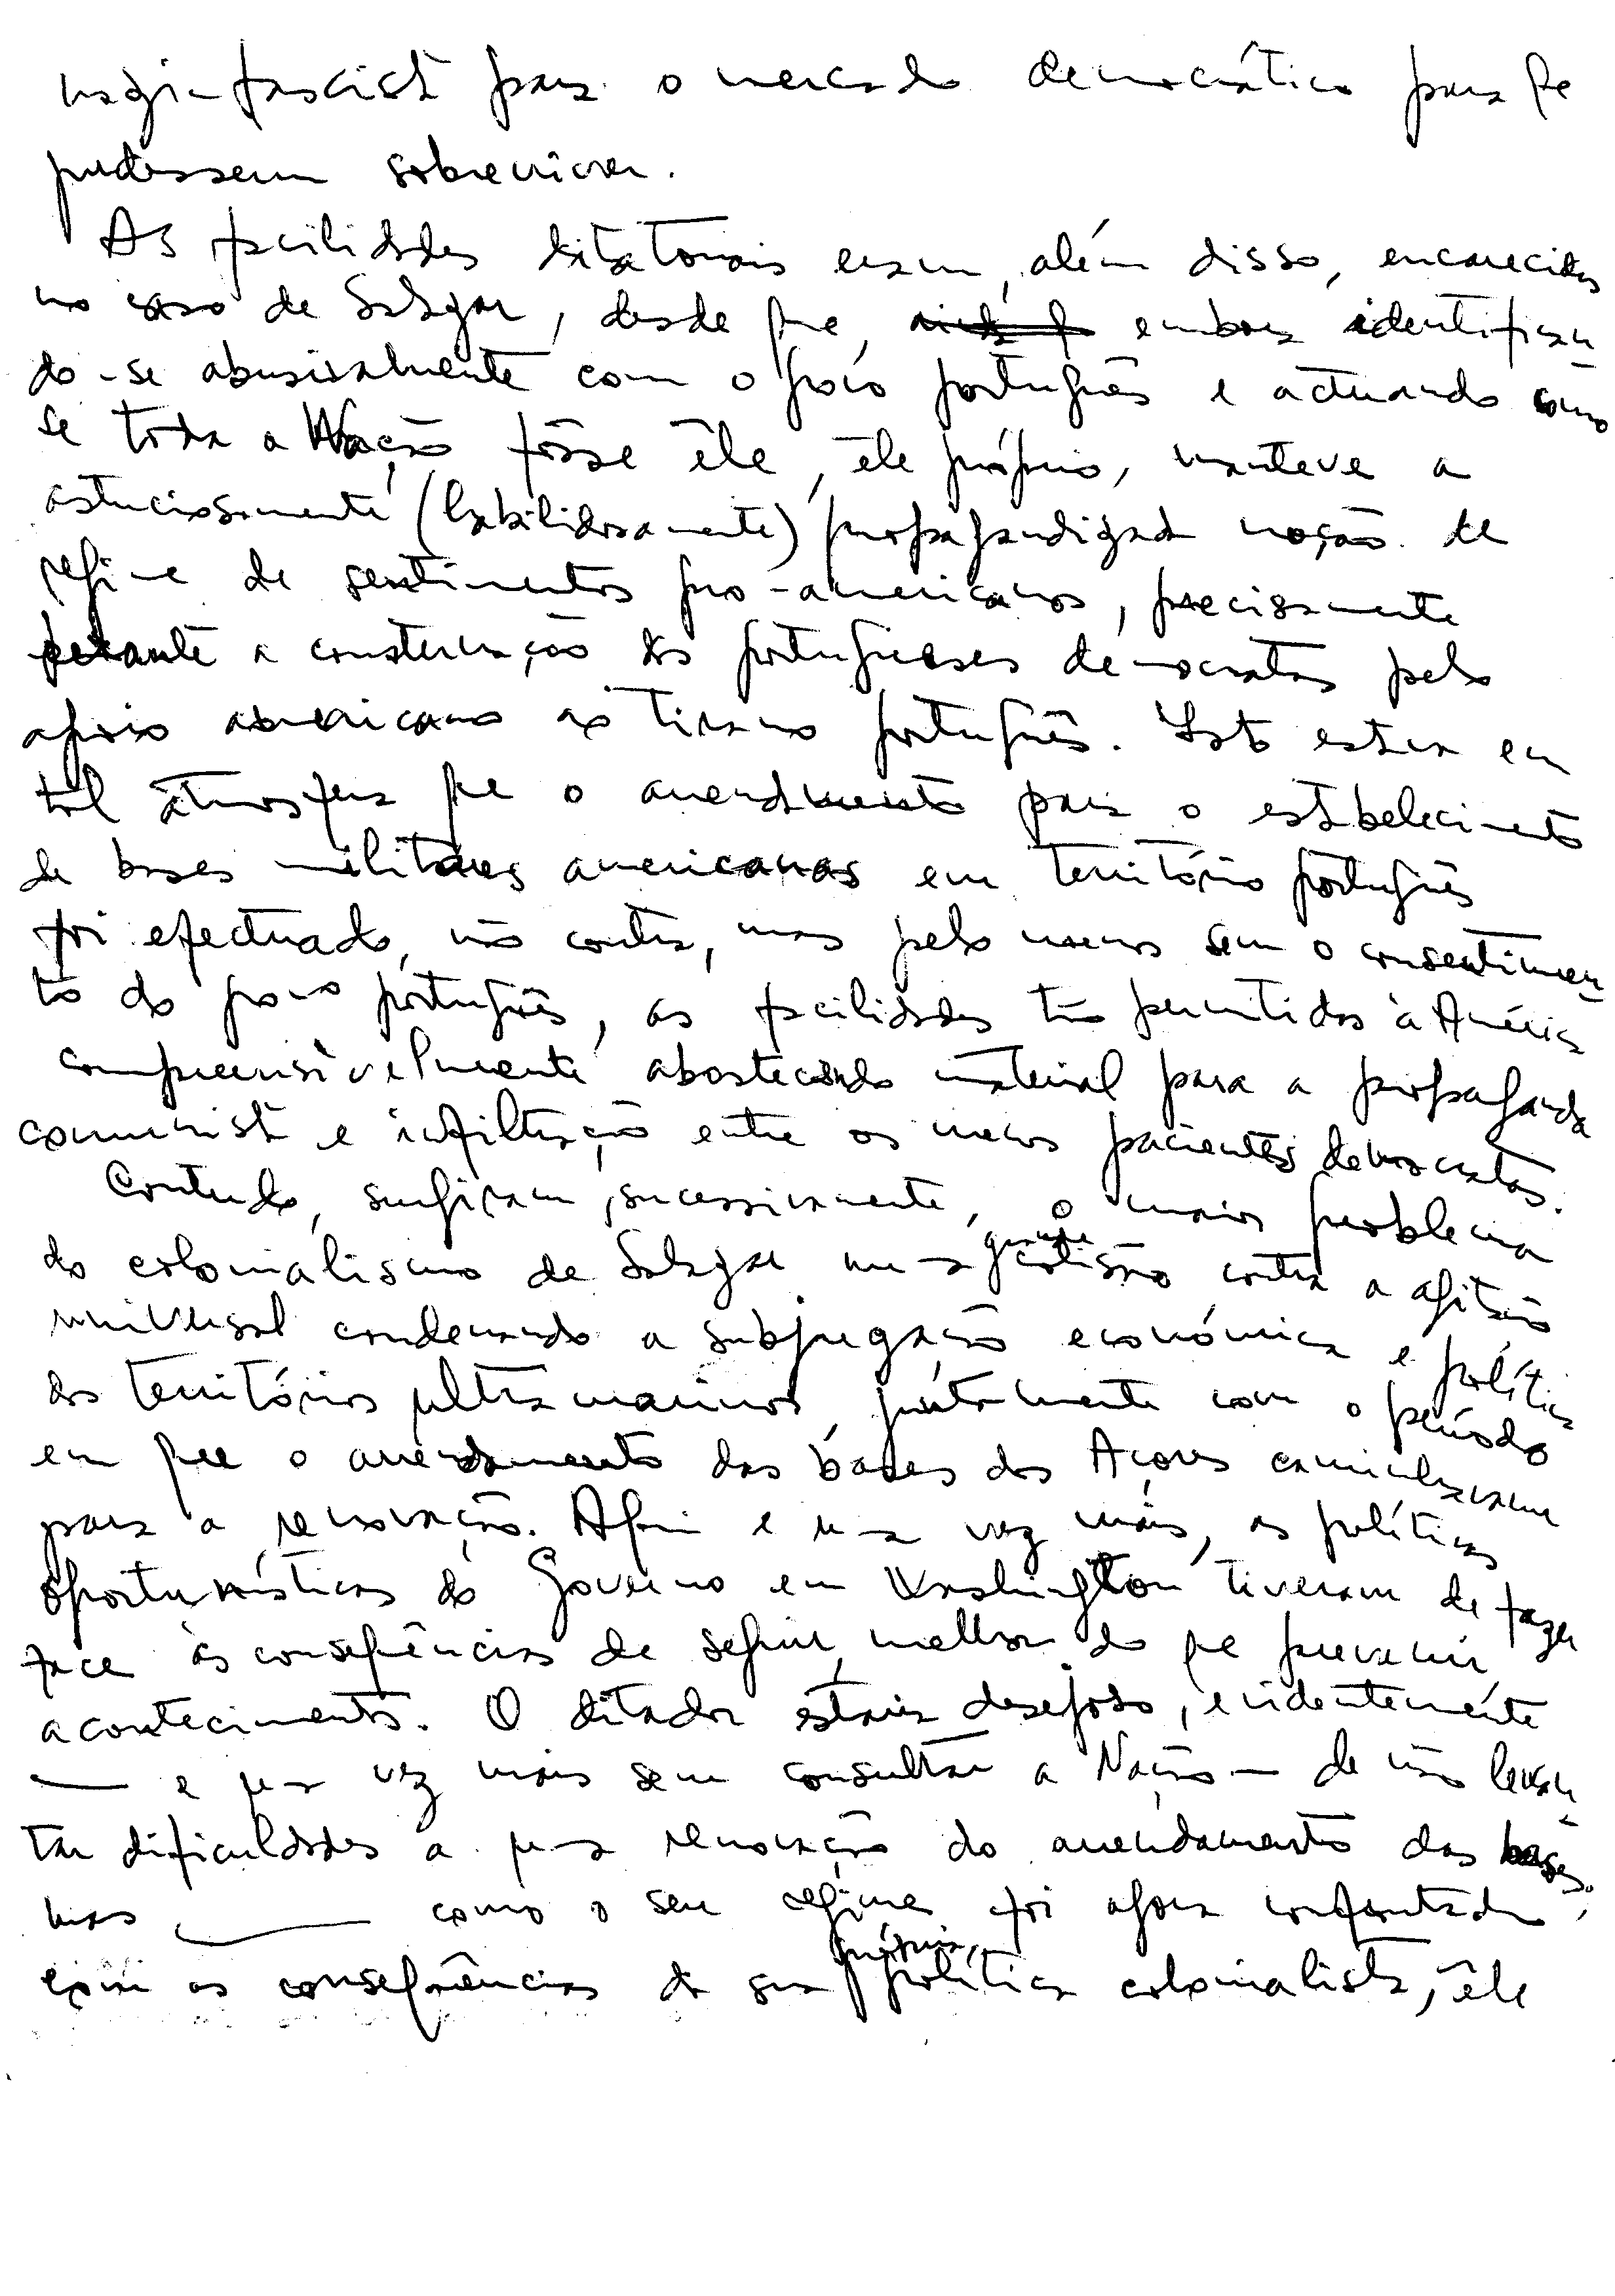 nazi-fascista para o mercado democrático para que
pudessem sobreviver.
As facilidades ditatoriais eram, além disso, encarecidas
no caso de Salazar, desde que, embora identifican
do-se abusivamente com o povo português e actuando como
se toda a Nação fôsse êle, êle próprio, manteve a
astuciosamente (habilidosamente) propagandizada noção de
regime de sentimentos pro-americanos, precisamente
perante a consternação dos portugueses democratas pelo
apoio americano ao tirano português. Isto estava em
tal atmosfera que o arrendamento para o estabelecimento
de bases militares americanas em território português
foi efectuado, não contra, mas pelo menos sem o consentimen-
to do povo português, as facilidades tão permitidas à América
compreensìvelmente abastecendo material para a propaganda
comunista e infiltração entre os menos pacientes democratas.
Contudo, surgiram, sucessivamente, o maior problema
do colonialismo de Salazar numa grande colisão contra a agitação
universal condenando a subjugação económica e política
dos territórios ultramarinos, juntamente com o período
em que o arrendamento das bases dos Açores caminhavam
para a renovação. Aqui e uma vez mais, as políticas
oportunísticas do Governo em Washington tiveram de fazer
face às conseqüências de seguir, melhor do que prevenir
acontecimentos. O ditador estava desejoso, evidentemente
— e uma vez mais sem consultar a Nação — de não levan-
tar dificuldades a uma renovação do arrendamento das bases,
mas como o seu regime foi agora confrontado
com as conseqüências da sua própria política colonialista, êle